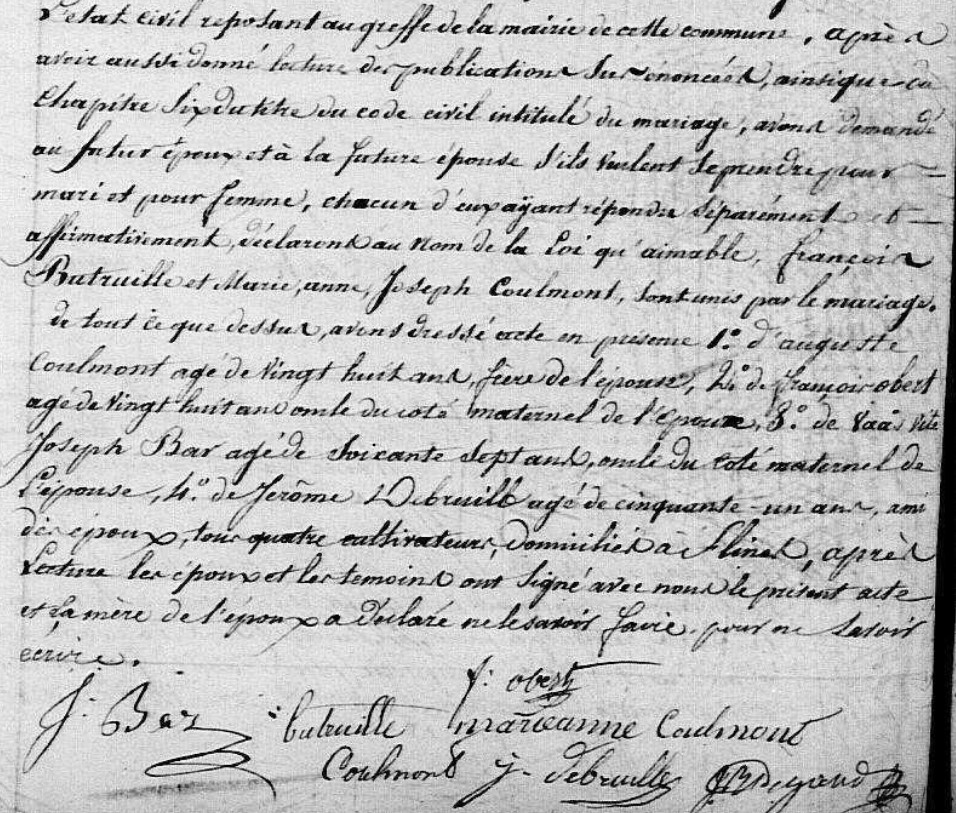 L'état civil reposant au greffe de la mairie de cette commune, après
avoir aussi donné lecture des publications sus énoncées, ainsi que du
Chapitre Six du titre du code civil intitulé du mariage, avons demandé
au futur époux et à la future épouse s'ils veulent se prendre pour
mari et pour femme, chacun d'eux ayant répondu séparément et
affirmativement, déclarons au nom de la Loi qu'aimable, françois
Butruille et Marie, anne, Joseph Coulmont, sont unis par le mariage.
de tout ce que dessus, avons dressé acte en présence 1.º d'auguste
Coulmont agé de vingt huit ans, frère de l'épouse, 2.º de françois obert
agé de vingt huit ans oncle du coté maternel de l'épouse, 3.º de
Joseph Bar agé de soixante sept ans, oncle du coté maternel de
L'épouse, 4.º de Jerôme Debruille agé de cinquante-un ans, ami
des époux, tous quatre cultivateurs, domiciliés à flines, après
Lecture les époux et les temoins ont signé avec nous le présent acte
et la mère de l'époux a déclaré ne le savoir faire, pour ne savoir
écrire.
f: obert
J: Bar butruille marieanne Coulmont
Coulmont j- debruille